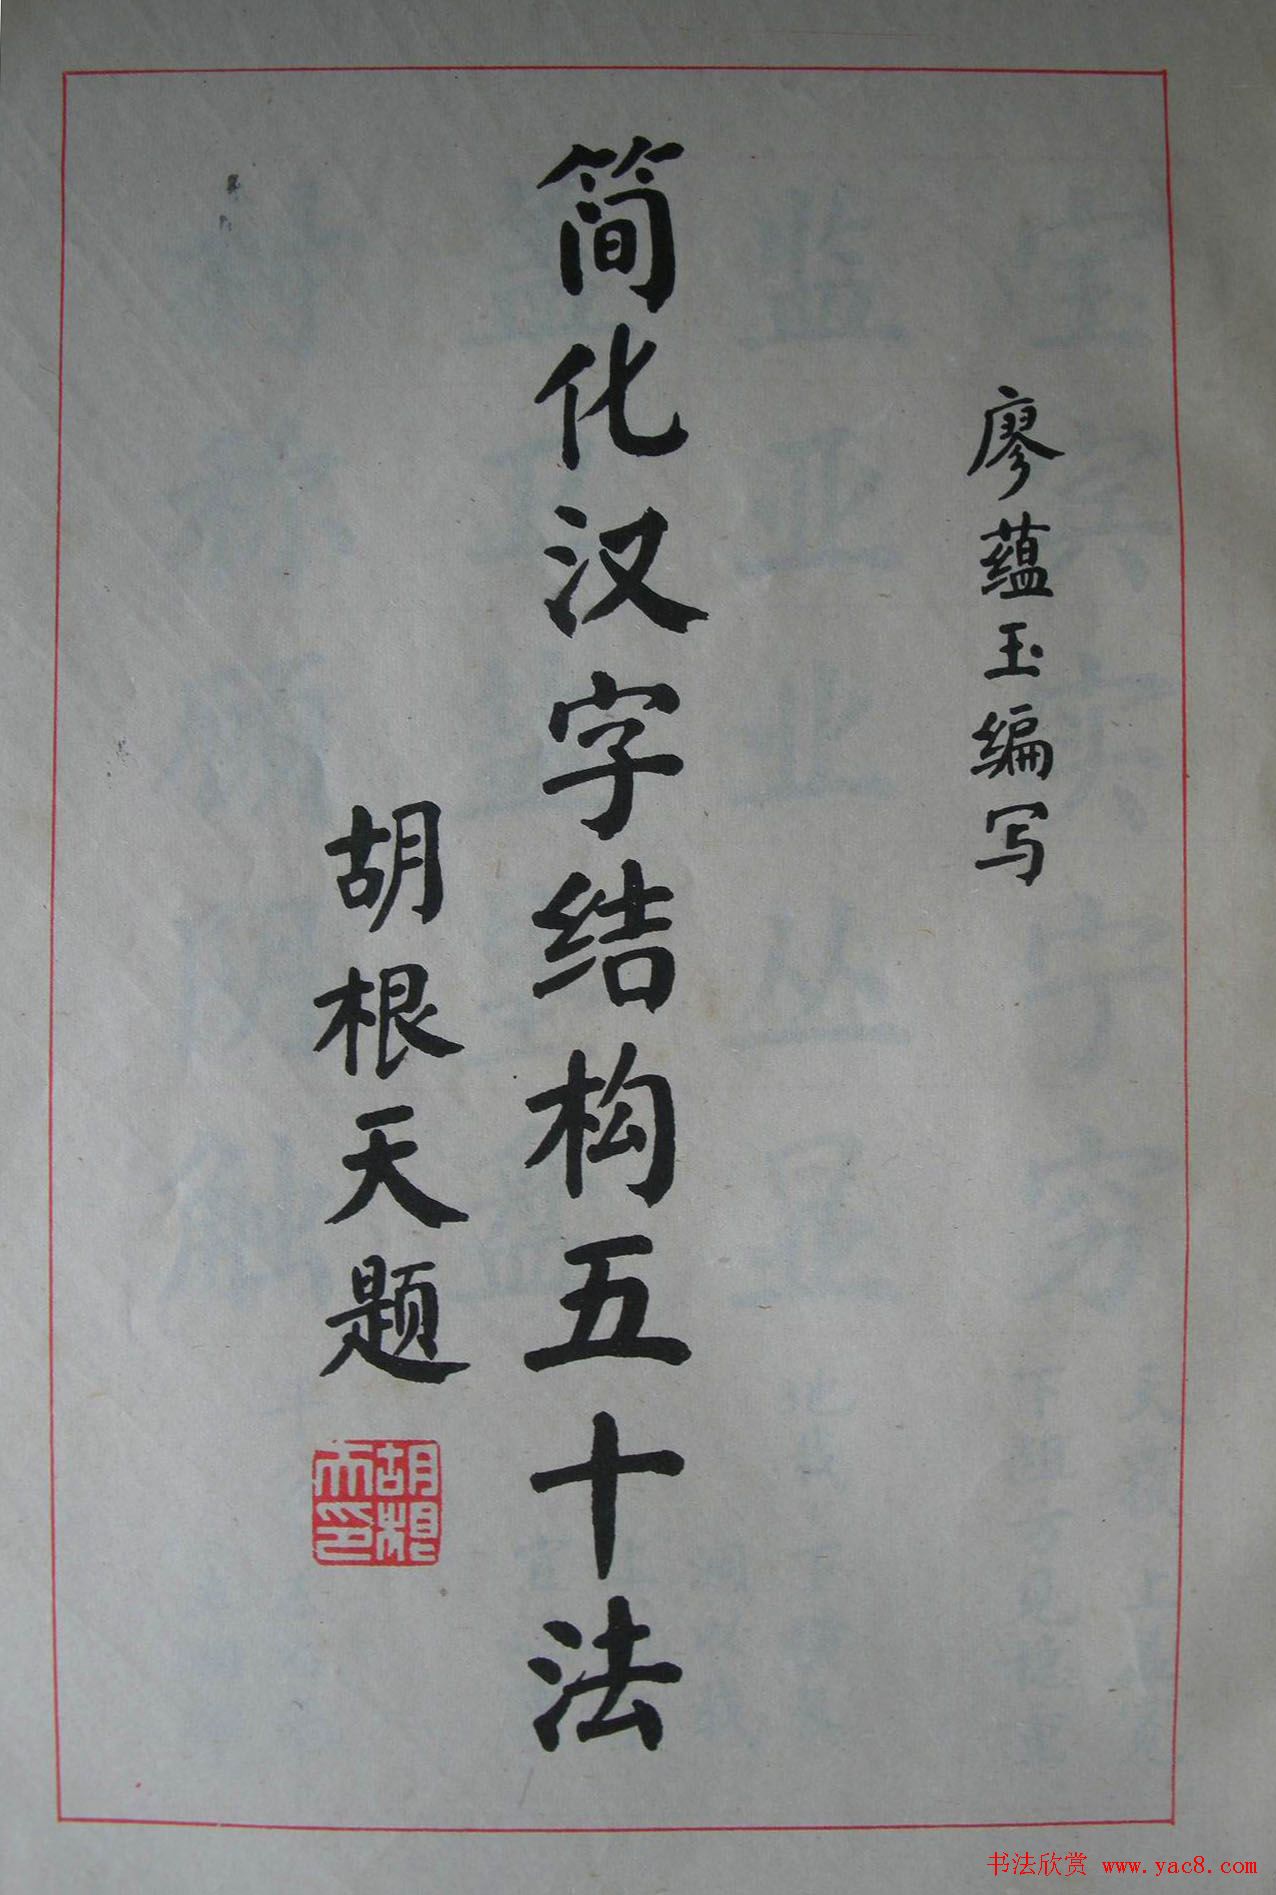 廖蕴玉编写
简化汉字结构五十法
胡根天题
胡根
天印
书法欣赏 www.yac8.com